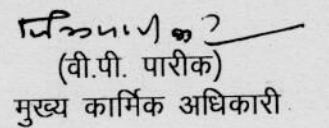 (वी.पी. पारीक)
मुख्य कार्मिक अधिकारी